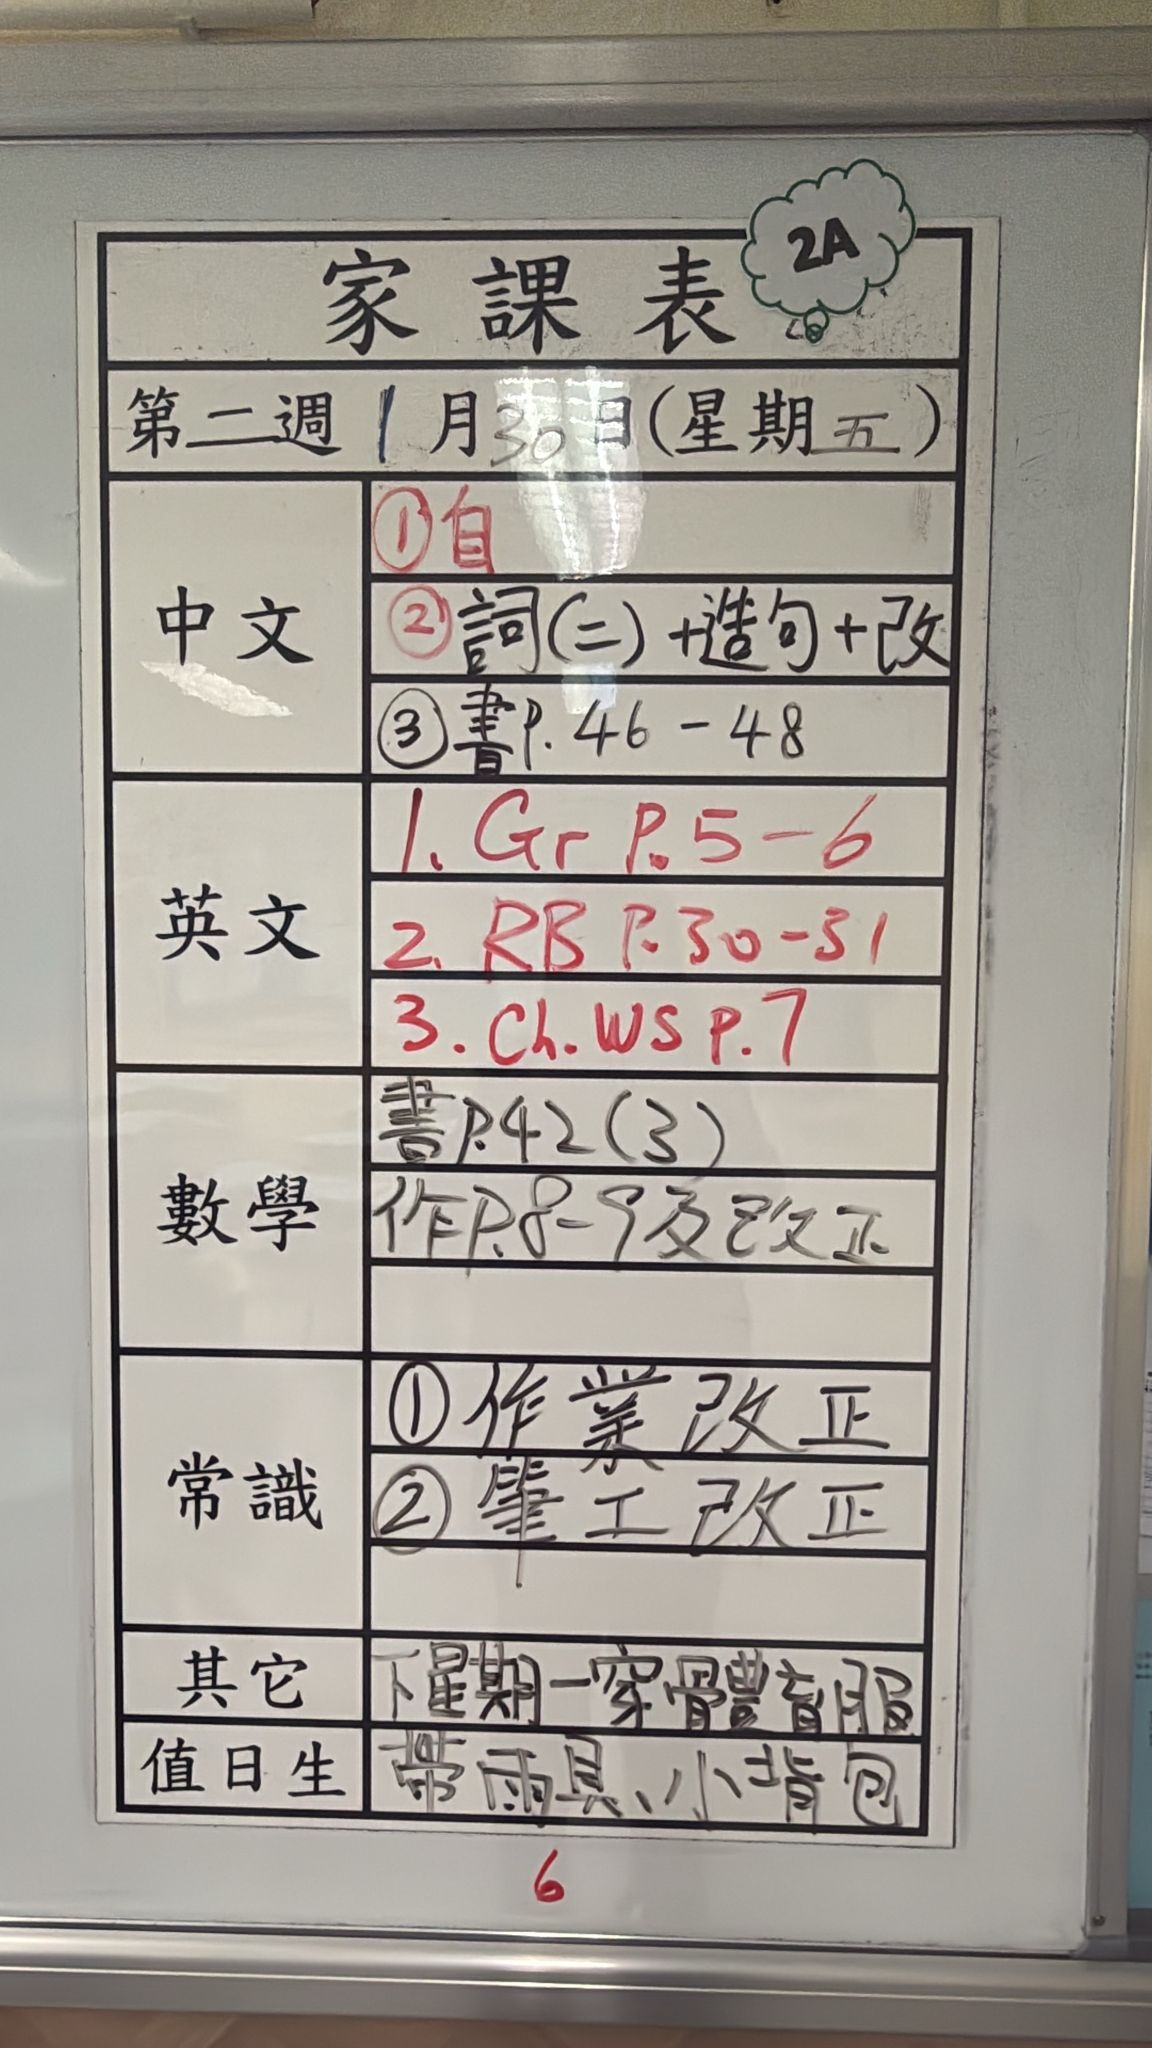 2A
家課表
第二週 1月30日(星期五)
中文
①自
②詞(二)+造句+改
③書P.46-48
英文
1. Gr P.5-6
2. RB P.30-31
3. Ch. WS p.7
數學
書P.42(3)
作P.8-9及改正
常識
①作業改正
②筆工改正
其它
下星期一穿體育服
值日生
帶雨具、小背包
6